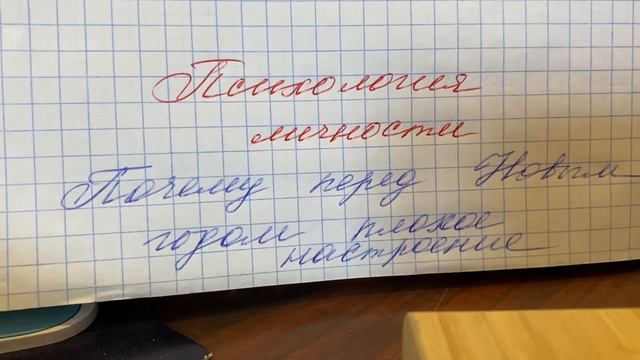 Психология
личности
Почему перед Новым
годом плохое
настроение